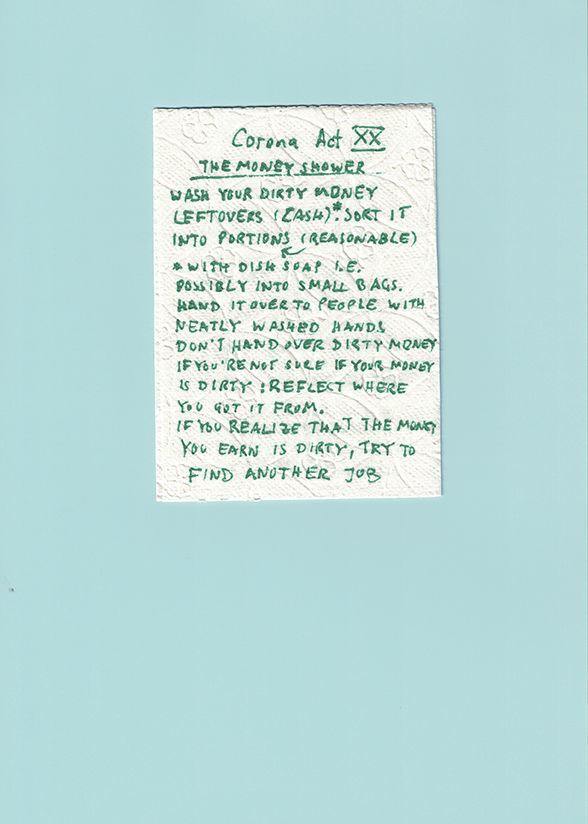 Corona Act XX
THE MONEY SHOWER
WASH YOUR DIRTY MONEY
LEFTOVERS (CASH)*. SORT IT
INTO PORTIONS (REASONABLE)
* WITH DISH SOAP I.E.
POSSIBLY INTO SMALL BAGS.
HAND IT OVER TO PEOPLE WITH
NEATLY WASHED HANDS
DON'T HAND OVER DIRTY MONEY
IF YOU'RE NOT SURE IF YOUR MONEY
IS DIRTY : REFLECT WHERE
YOU GOT IT FROM.
IF YOU REALIZE THAT THE MONEY
YOU EARN IS DIRTY, TRY TO
FIND ANOTHER JOB